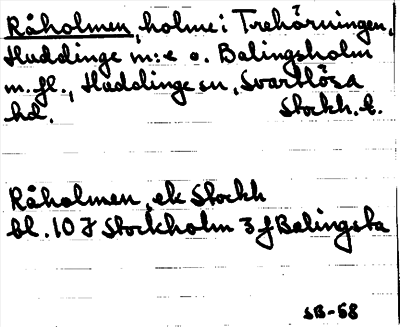 Råholmen, holme i Trehörningen,
Huddinge m:e o. Balingsholm
m.fl., Huddinge sn, Svartlösa
hd. Stockh. l.
Råholmen, ek Stockh
bl. 10 I Stockholm 3 f Balingsta
SB-58